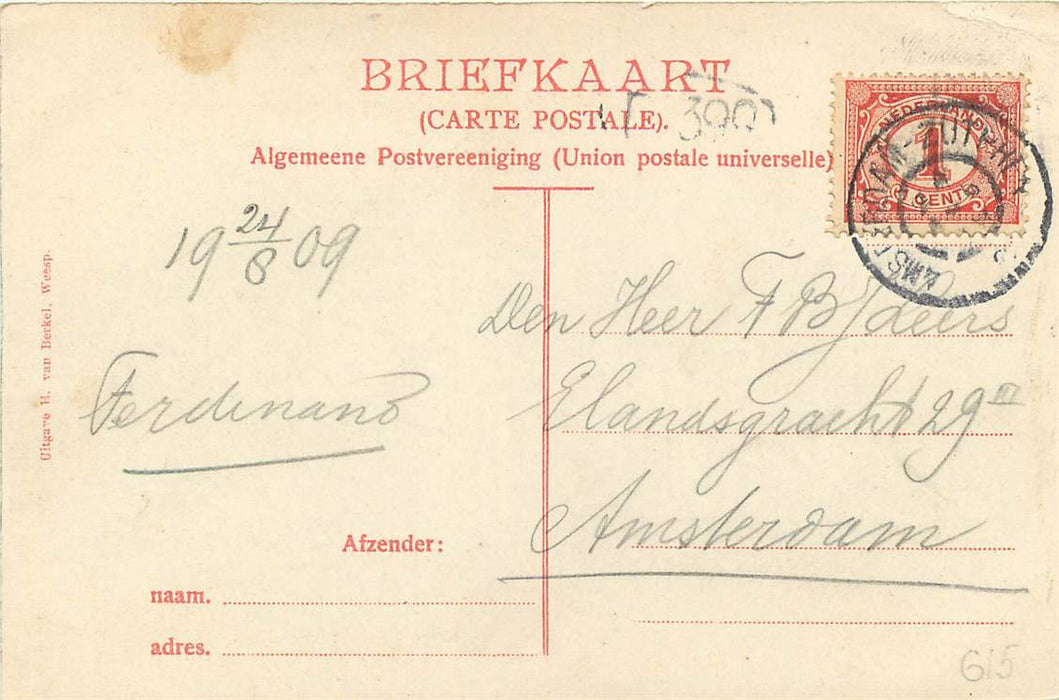 BRIEFKAART
(CARTE POSTALE).
Algemeene Postvereeniging (Union postale universelle)
390
NEDERLAND
1
CENT
AMSTERDAM-ZUTPHEN
19 24/8 09
Ferdinand
Uitgave H. van Berkel, Weesp.
Den Heer F B
Elandsgracht 29 III
Amsterdam
Afzender:
naam.
adres.
G15